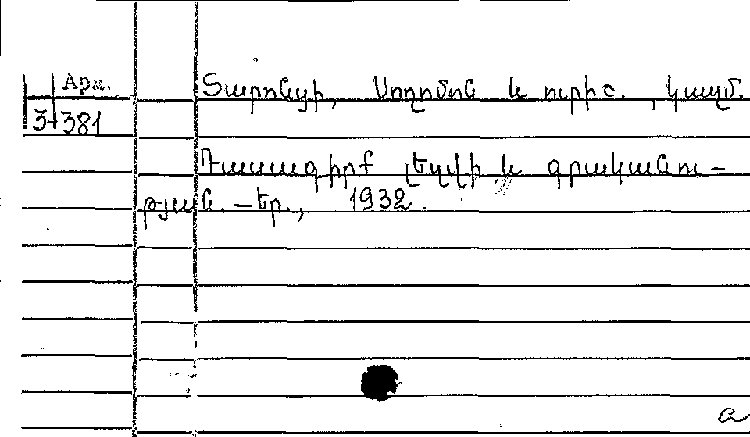 Արխ.
3-381
Տարոնցի, Սողոմոն և ուրիշ. , կազմ.
Դասագիրք լեզվի և գրականու-
թյան. - Եր., 1932.
a